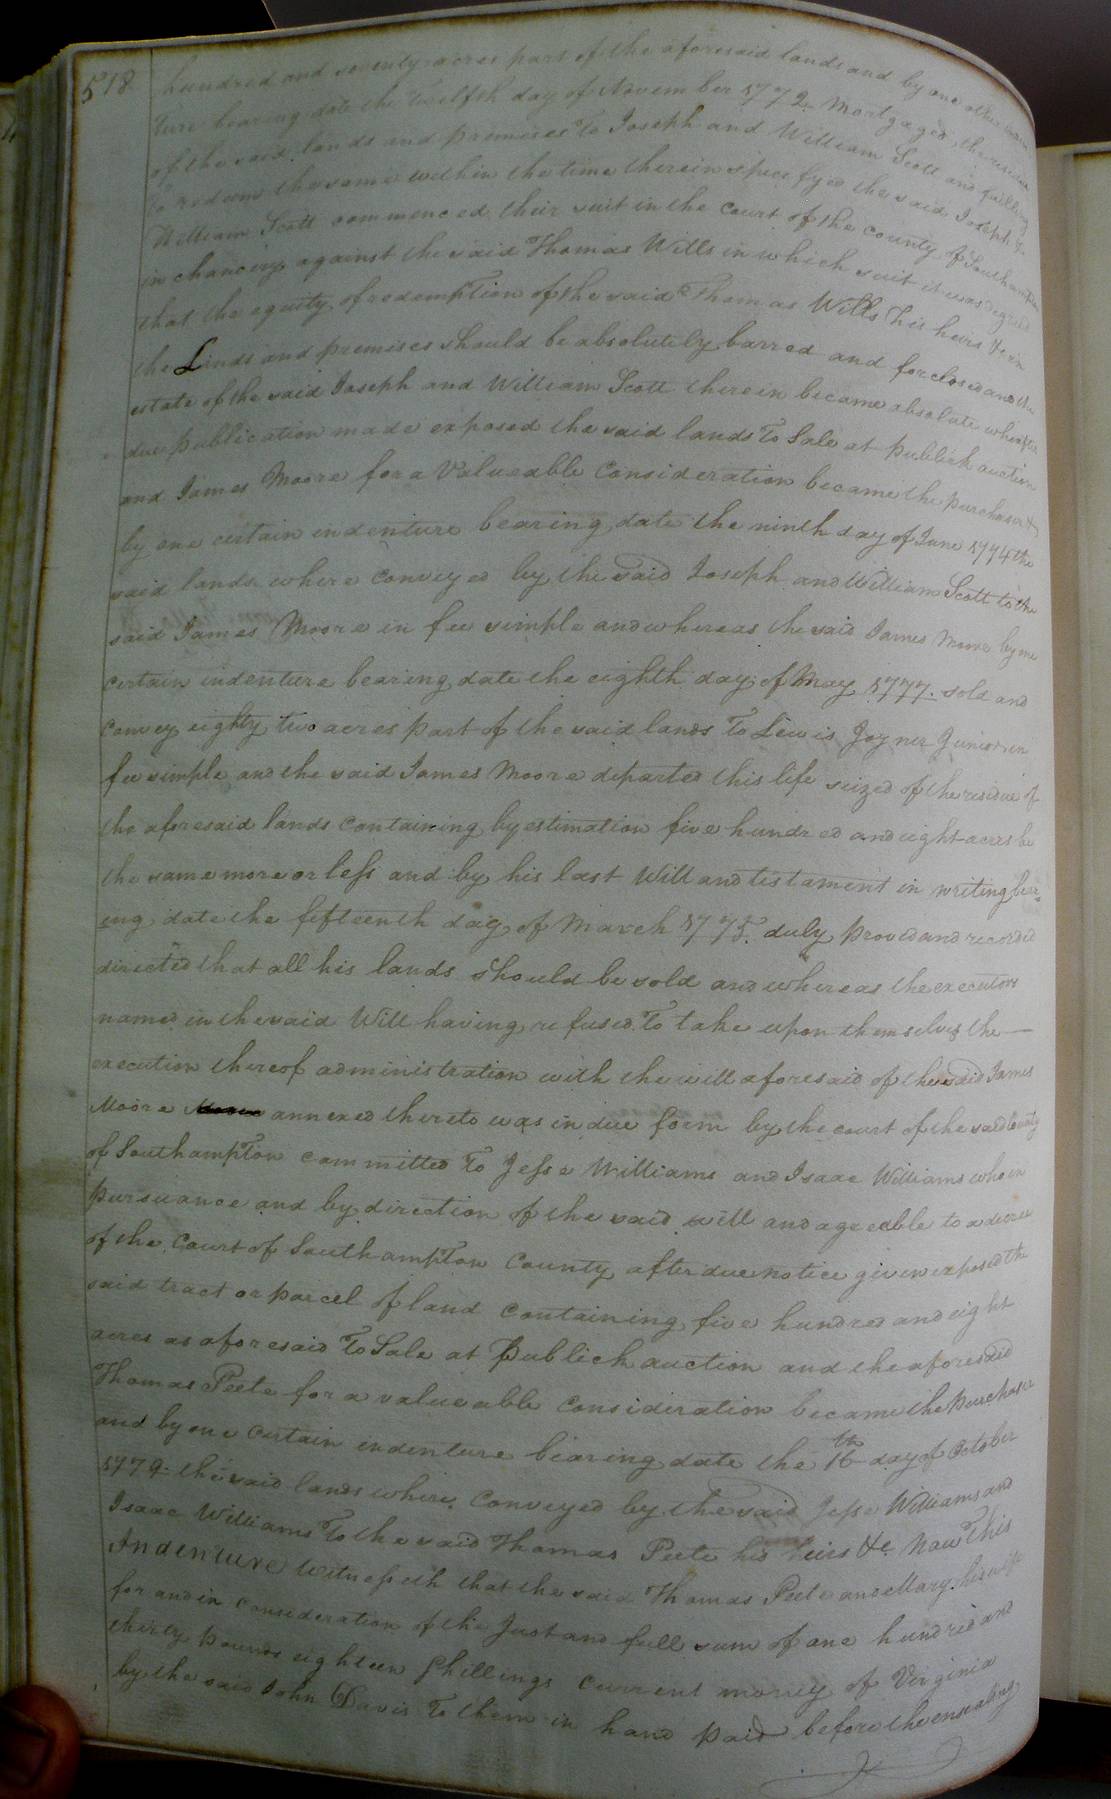 518
hundred and seventy acres part of the aforesaid lands and by one other inden
ture bearing date the twelfth day of November 1772. Mortgaged the residue
of the said lands and premises To Joseph and William Scott and failling
To redeem the same within the time therein specefyed the said Joseph &
William Scott commenced their suit in the court of the county of Southampton
in chancery against the said Thomas Wills in which suit it was degreed
that the equity of redemption of the said Thomas Wills his heirs &c in
the Lands and premises should be absolutely barred and forclosed and the
estate of the said Joseph and William Scott therein became absolute who after
due publication made exposed the said lands To Sale at publick auction
and James Moore for a Valueable Consideration became the purchaser &
by one certain indenture bearing date the ninth day of June 1774 the
said lands where Conveyed by the said Joseph and William Scott to the
said James Moore in fee simple and whereas the said James Moore by one
certain indenture bearing date the eighth day of May 1777. sold and
convey eighty two acres part of the said lands To Lewis Joyner Junior in
fee simple and the said James Moore departed this life seized of the residue of
the aforesaid lands containing by estimation five hundred and eight acres be
the same more or less and by his last Will and testament in writing bear
ing date the fifteenth day of March 1775. duly proved and recorded
directed that all his lands should be sold and whereas the executors
named in the said Will having refused To take upon themselves the —
execution thereof administration with the will aforesaid of the said James
Moore annexed thereto was in due form by the court of the said County
of Southampton committed To Jesse Williams and Isaac Williams who in
pursuance and by direction of the said will and agreeable to a decree
of the Court of Southampton County after due notice given exposed the
said tract or parcel of land containing five hundred and eight
acres as aforesaid To Sale at Publick auction and the aforesaid
Thomas Peete for a valueable Consideration became the purchaser
and by one certain indenture bearing date the 16th day of October
1779. the said lands where Conveyed by the said Jesse Williams and
Isaac Williams To the said Thomas Peete his heirs &c. Now This
Indenture Witnesseth that the said Thomas Peete and Mary his wife
for and in consideration of the Just and full sum of one hundred and
thirty pounds eighteen Shillings Current money of Virginia
by the said John Davis To them in hand paid before the ensealing